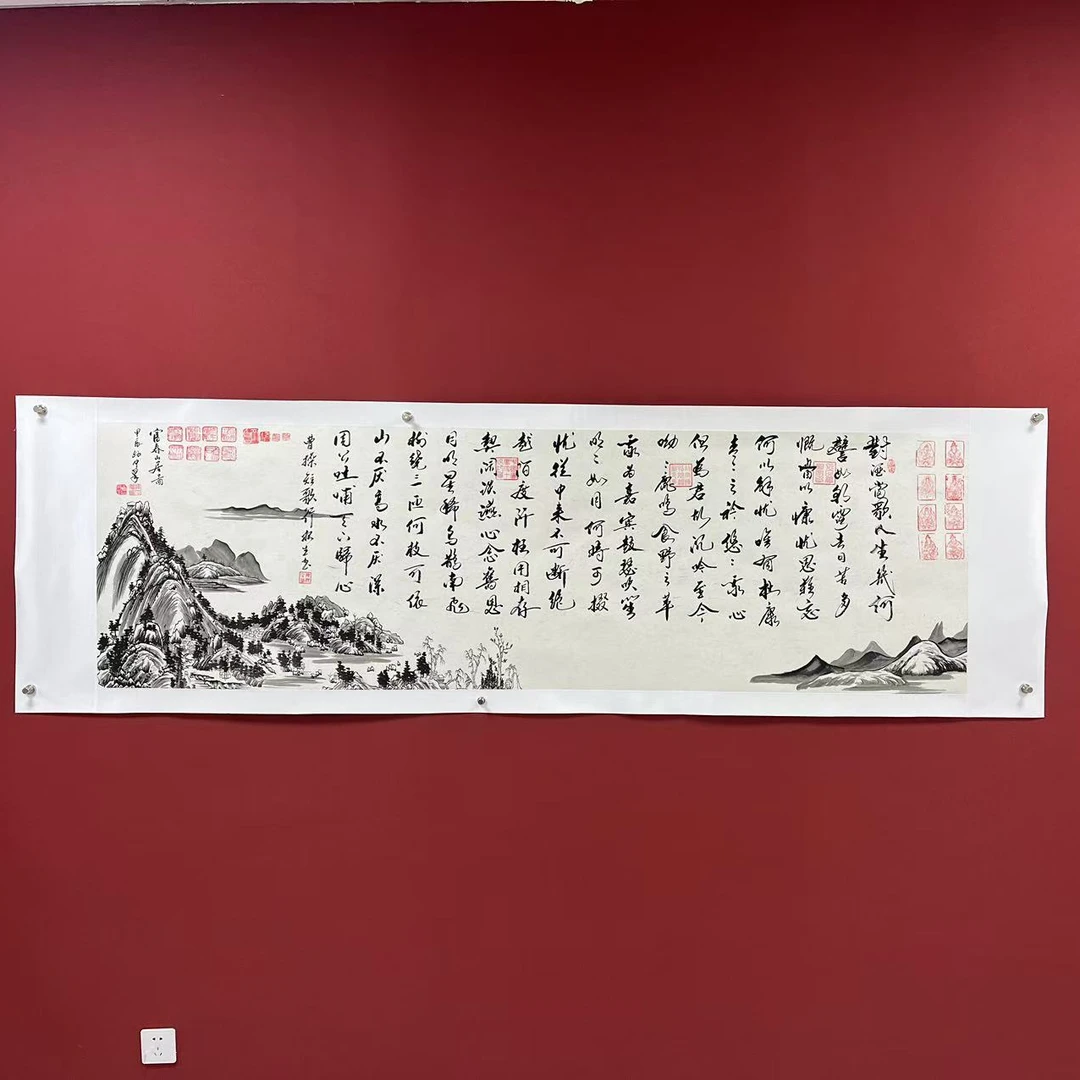 對酒當歌人生幾何
譬如朝露去日苦多
慨當以慷忧思難忘
何以解忧唯有杜康
青〻子衿悠〻我心
但為君故沉吟至今
呦〻鹿鳴食野之苹
我有嘉賓鼓瑟吹笙
明〻如月何時可掇
忧從中来不可断絕
越陌度阡枉用相存
契阔談讌心念舊恩
月明星稀烏鵲南飛
樹繞三匝何枝可依
山不厌高水不厌深
周公吐哺天下歸心
曹操短歌行
富春山居圖
甲辰